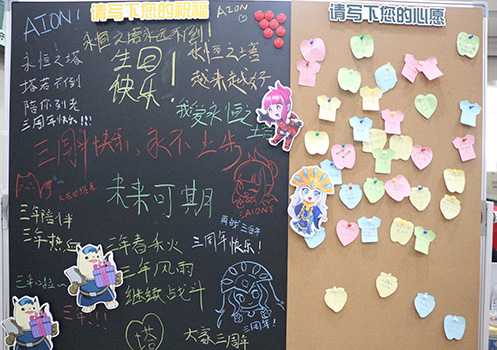 请写下您的祝福
请写下您的心愿
AION!
AION
永恒之塔永远不倒!
永恒之塔
塔若不倒
陪你到老
三周年快乐!!!
生日
快乐!
永恒之塔
越来越好
我爱永恒之
三周年快乐,永不
未来可期
AION
三年陪伴
三年热血
再战三年
三周年快乐!
三年春秋
三年风雨
继续战斗
塔
大家三周年
三周年!